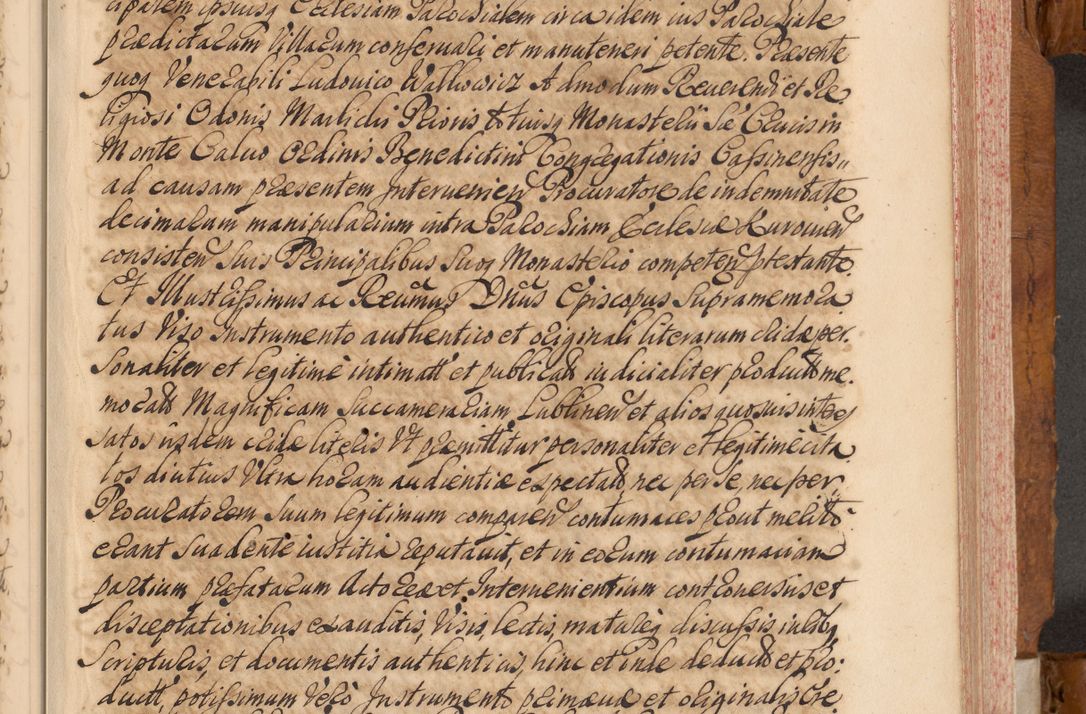 cipalem ipsiusq Ecclesiam Parochialem circa idem ius Parochiale
prædictarum Villarum conseruari et manuteneri petente. Præsente
quoq Venerabili Ludouico Wallowicz Admodum Reuerendi et Re
ligiosi Odonis Marlicki Prioris totiusq Monasterii Sæ Crucis in
Monte Caluo Ordinis Benedictini Congregationis Cassinensis
ad causam præsentem Interuenien Procuratore de indemnitate
decimarum manipularium intra Parochiam Ecclesiæ Kurowien
consisten suis Principalibus suoq Monasterio competen ptestante.
Et Illustrissimus ac Reuerdmus Dnus Episcopus supramemora
tus Viso Instrumento authentico et originali literarum cridæ per
sonaliter et legitimè intimatt et publicatt iudicialiter productt me
moratt Magnificam Succamerariam Lublinen et alios quosuis interes
satos iisdem cridæ literis Vt præmittitur personaliter et legitime cita
tos diutius Vltra horam audientiæ expectatt nec per se, nec per
Procuratorem suum legitimum comparen contumaces prout meritò
erant suadente iustitia reputauit, et in eorum contumaciam
partium præfatarum Actoreæ et Interuenientium controuersiis et
disceptationibus exauditis, Visis, lectis, matureq discussis iuribq
Scripturis, et documentis authenticis, hinc et inde deductt et pro:
ductt, potissimum Verò Instrument primæuæ et originalis Cre